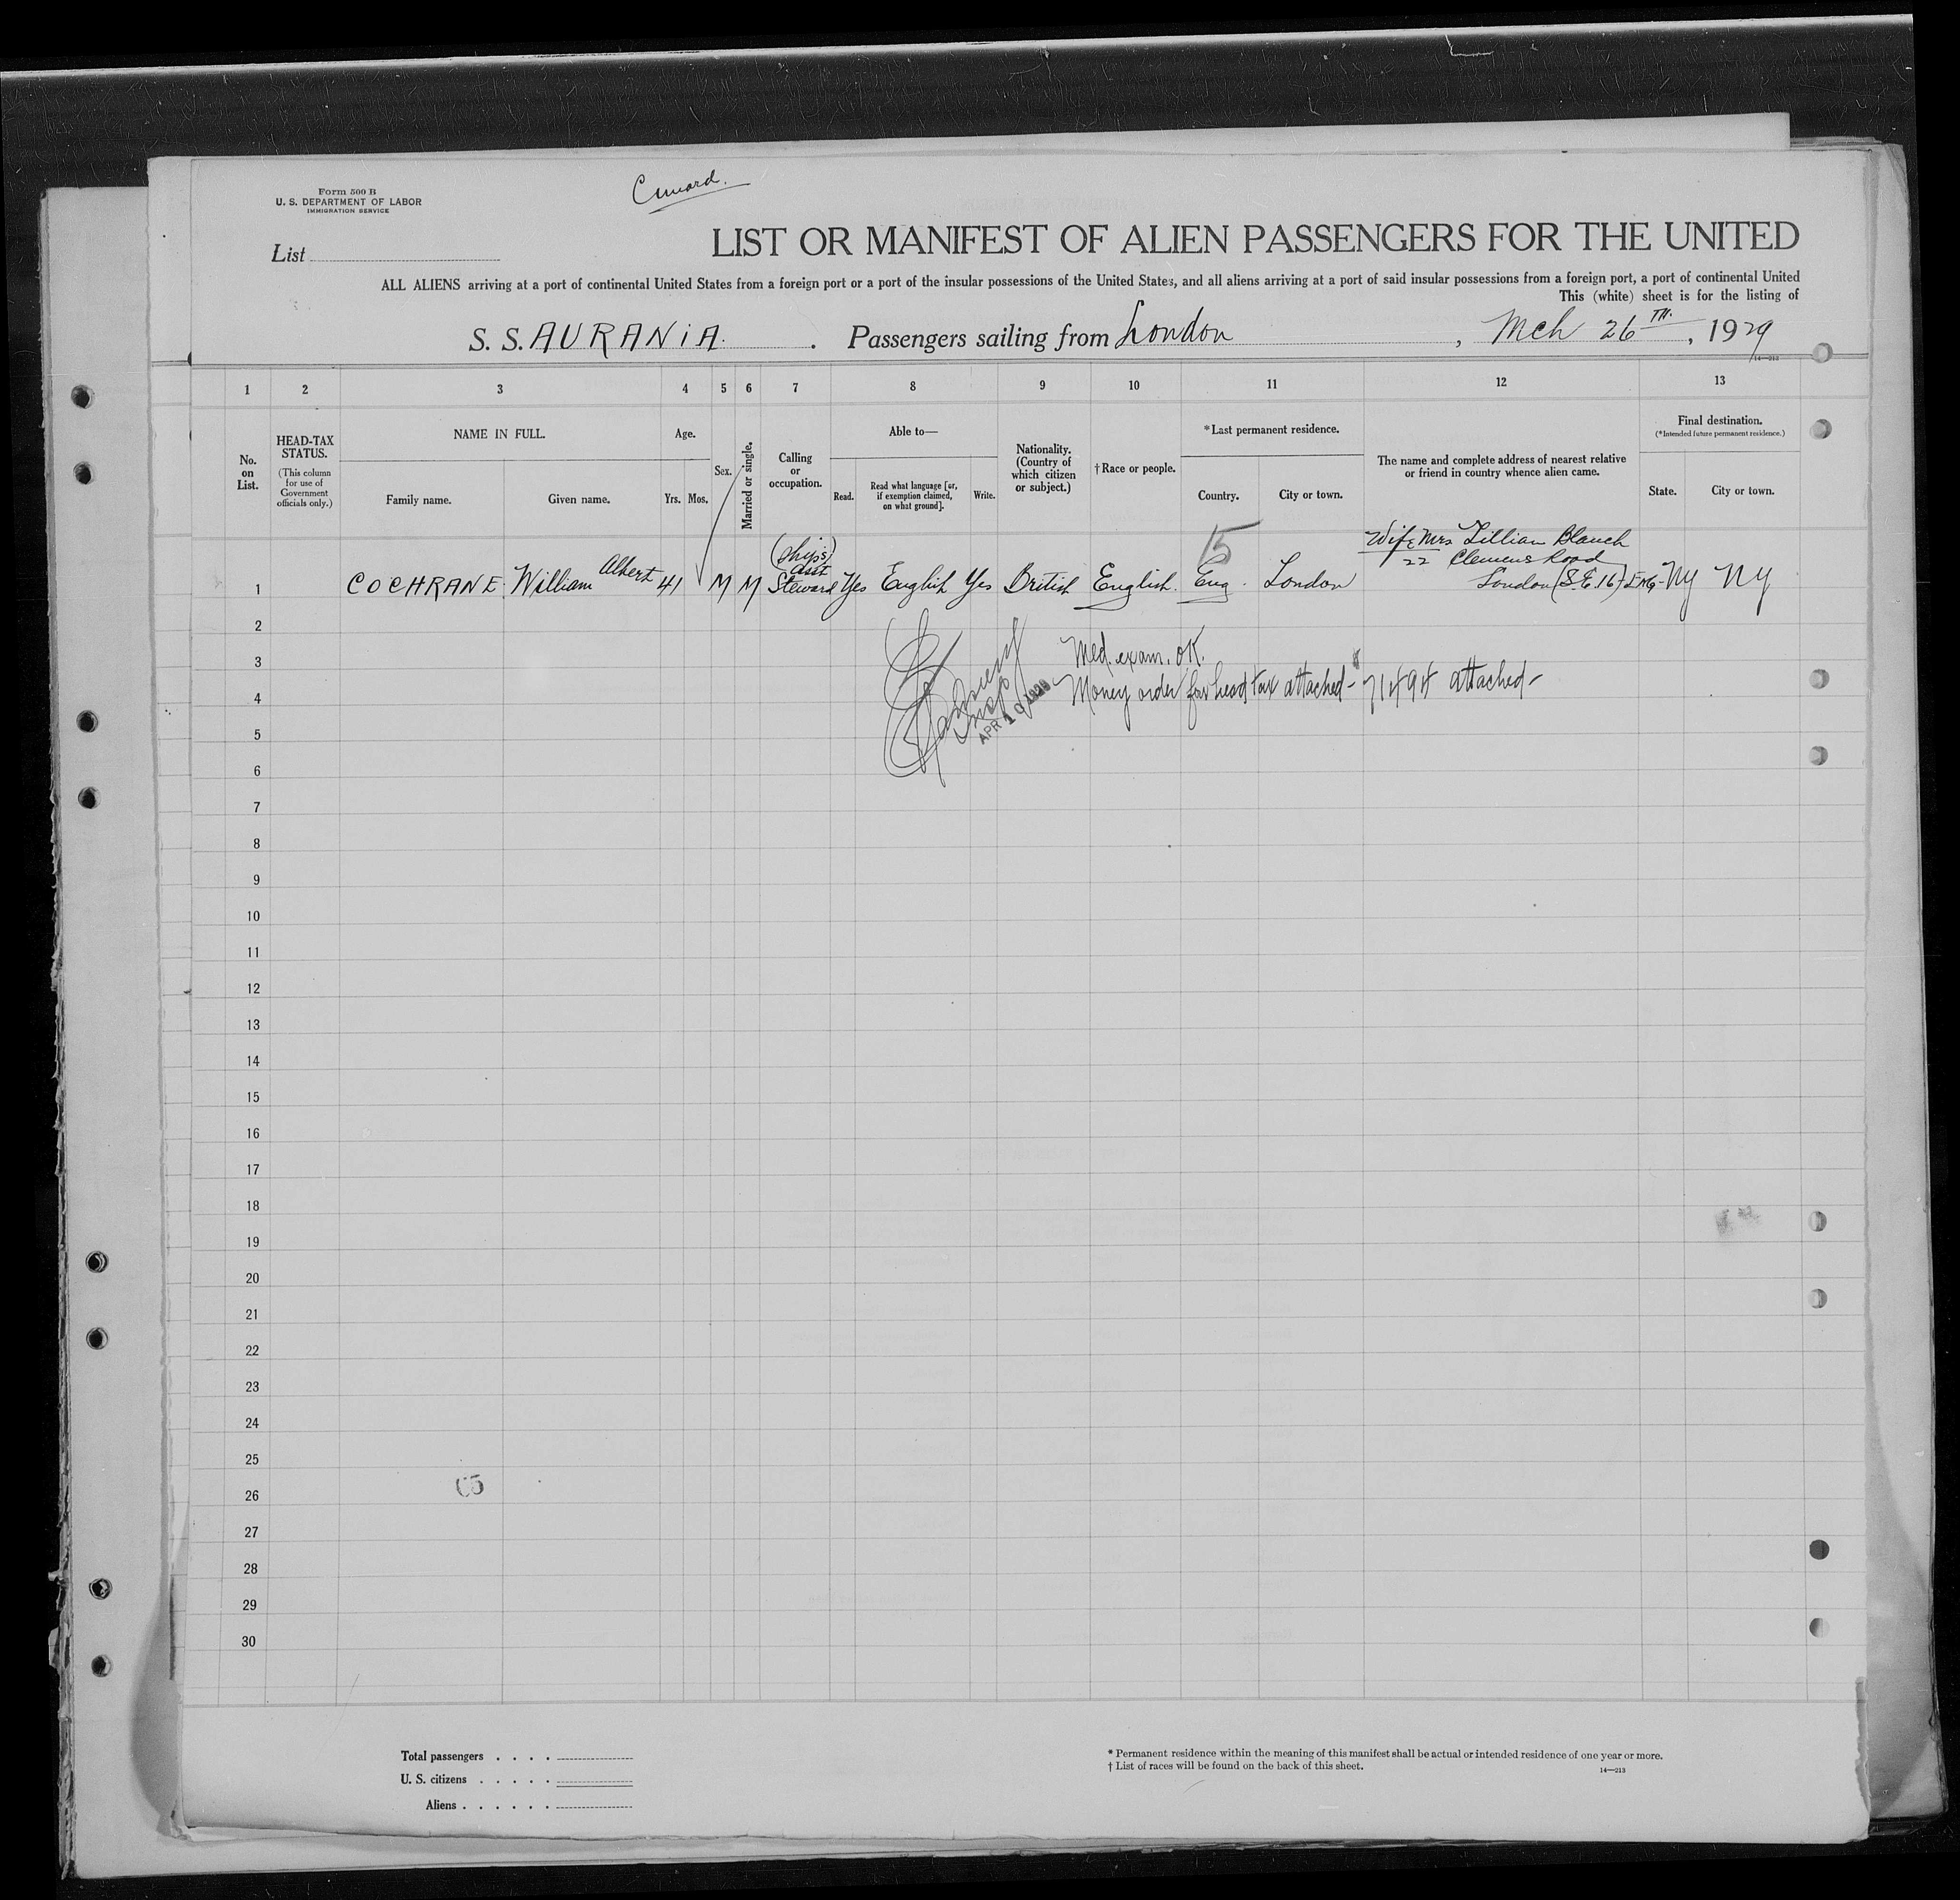 Form 500 B
U. S. DEPARTMENT OF LABOR
IMMIGRATION SERVICE
Cunard.
List
LIST OR MANIFEST OF ALIEN PASSENGERS FOR THE UNITED
ALL ALIENS arriving at a port of continental United States from a foreign port or a port of the insular possessions of the United States, and all aliens arriving at a port of said insular possessions from a foreign port, a port of continental United
This (white) sheet is for the listing of
S. S. AURANIA. Passengers sailing from London, Mch 26TH., 1929
14—213
1 2 3 4 5 6 7 8 9 10 11 12 13
No. on List.
HEAD-TAX STATUS.
(This column for use of Government officials only.)
NAME IN FULL.
Family name. Given name.
Age.
Yrs. Mos.
Sex.
Married or single.
Calling or occupation.
Able to—
Read. Read what language [or, if exemption claimed, on what ground]. Write.
Nationality. (Country of which citizen or subject.)
†Race or people.
*Last permanent residence.
Country. City or town.
The name and complete address of nearest relative or friend in country whence alien came.
Final destination.
(*Intended future permanent residence.)
State. City or town.
15
1 COCHRANE William Albert 41 M M (Ship's) Asst Steward Yes English Yes British English. Eng. London Wife Mrs Lillian Blanch 22 Clemens Road London (S.E. 16) ENG- NY NY
2
3 Med. exam. OK.
4 Money order for head tax attached - 71494 attached -
APR 10 1929
5
6
7
8
9
10
11
12
13
14
15
16
17
18
19
20
21
22
23
24
25
26
27
28
29
30
Total passengers . . . .
U. S. citizens . . . . .
Aliens . . . . . .
* Permanent residence within the meaning of this manifest shall be actual or intended residence of one year or more.
† List of races will be found on the back of this sheet.
14—213